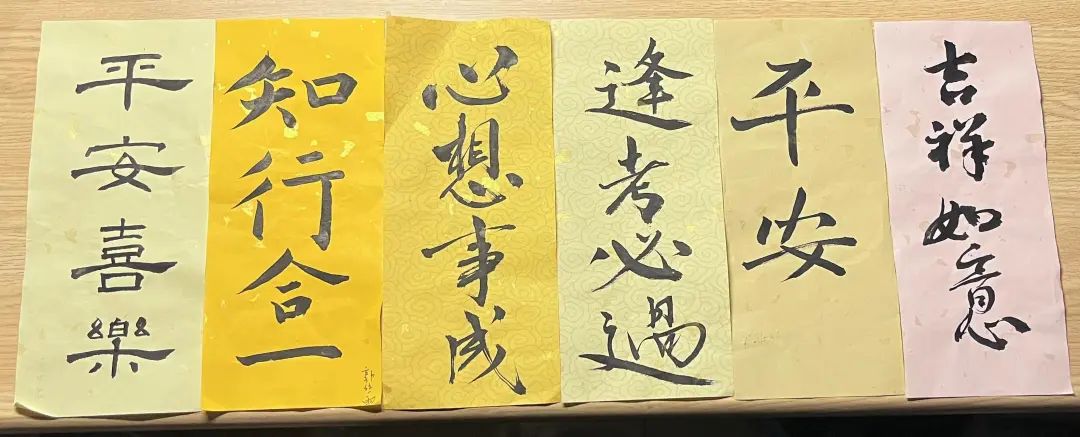 平安喜樂
知行合一
心想事成
逢考必過
平安
吉祥如意